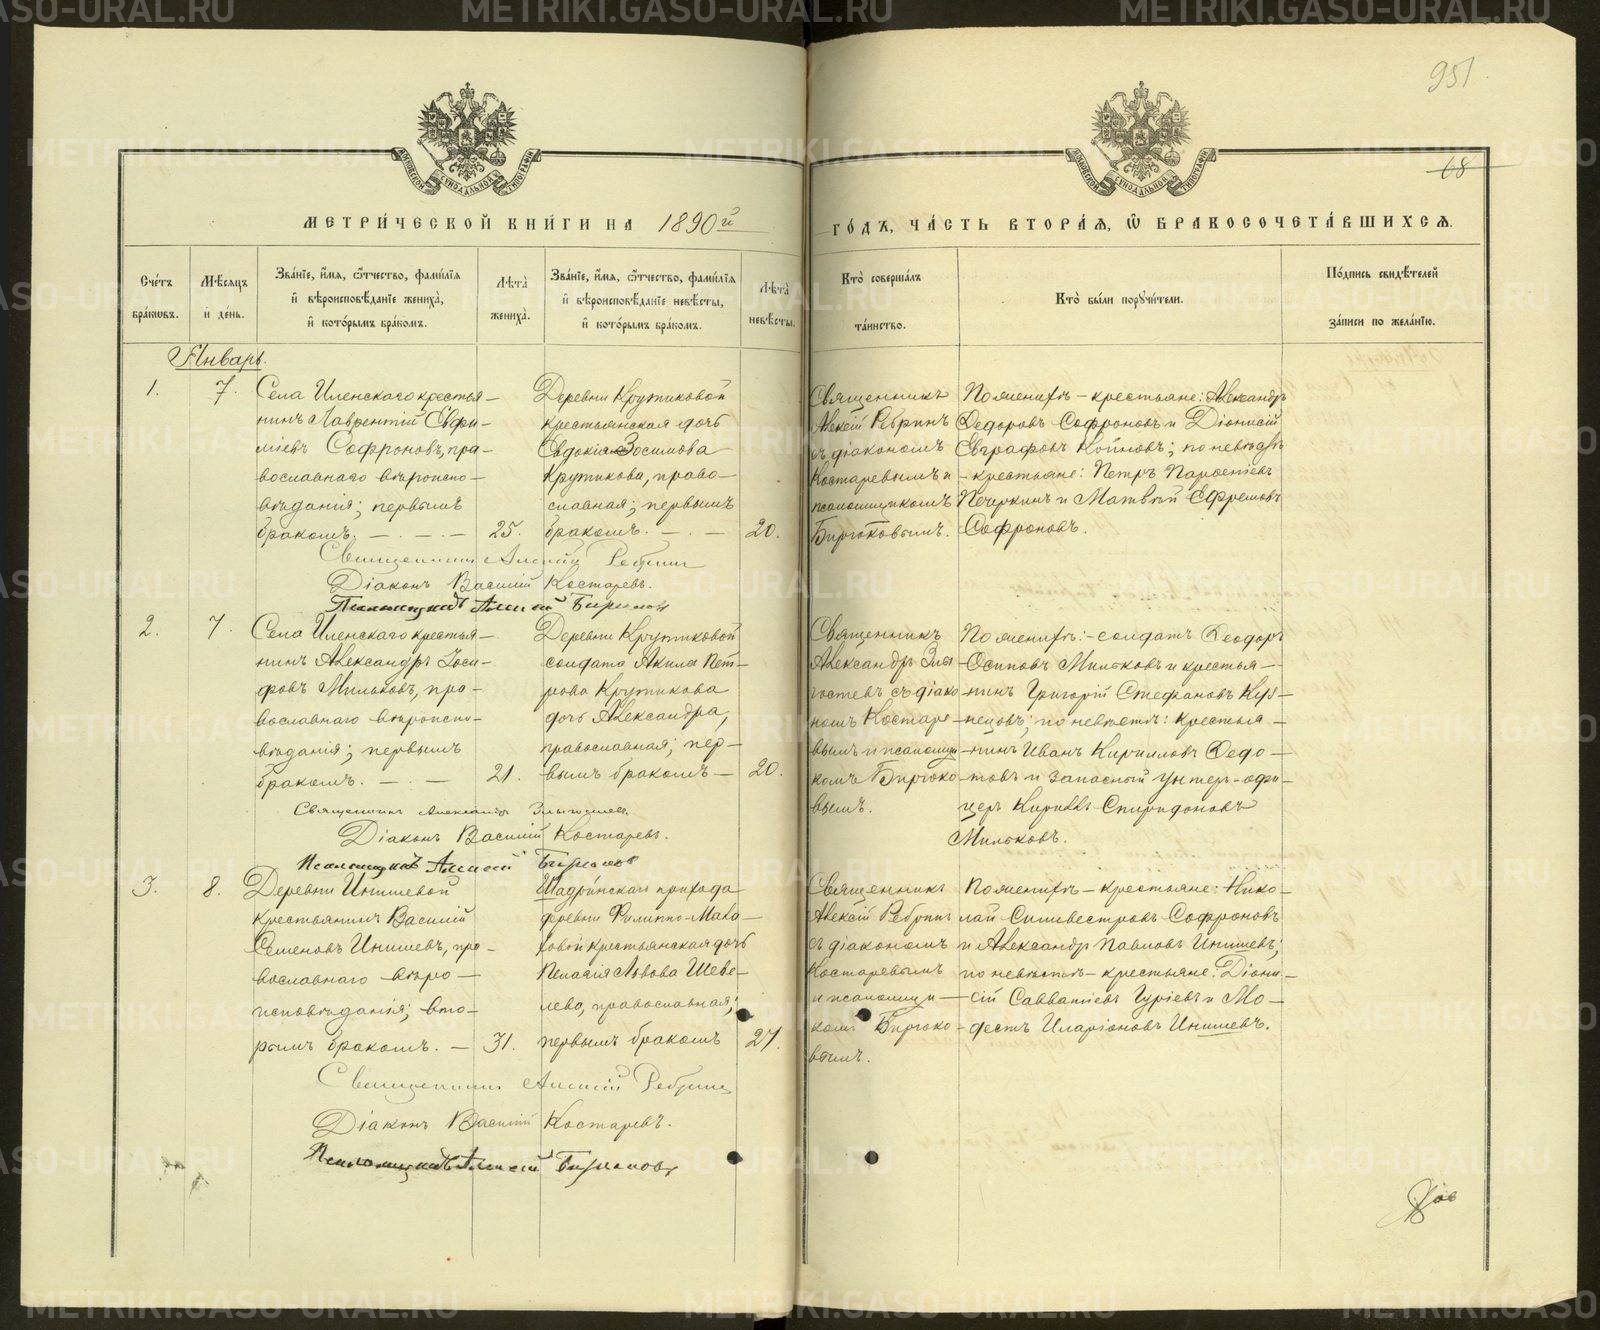 951
68
МОСКОВСКОЙ СѴНОДАЛЬНОЙ ТИПОГРАФІИ
МОСКОВСКОЙ СѴНОДАЛЬНОЙ ТИПОГРАФІИ
МЕТРИ́ЧЕСКОЙ КНИ́ГИ НА 1890й
ГО́ДЪ, ЧА́СТЬ ВТОРА́Я, Ѽ БРАКОСОЧЕТА́ВШИХСЯ.
Сче́тъ бра́кѡвъ.
Мѣ́сяцъ и҆ де́нь.
Зва́нїе, и҆́мя, ѻ҆́тчество, фами́лїя и҆ вѣроисповѣ́данїе жениха̀, и҆ кото́рымъ бра́комъ.
Лѣ́та жениха̀.
Зва́нїе, и҆́мя, ѻ҆́тчество, фами́лїя и҆ вѣроисповѣ́данїе невѣ́сты, и҆ кото́рымъ бра́комъ.
Лѣ́та невѣ́сты.
Кто̀ соверша́лъ та́инство.
Кто̀ бы́ли порꙋчи́тели.
По́дпись свидѣ́телей за́писи по жела́нїю.
Январь.
1.
7.
Села Иленскаго крестья-
нинъ Лаврентій Евфи-
міевъ Софроновъ, пра-
вославнаго вѣроиспо-
вѣданія; первымъ
бракомъ. — . — . —
25.
Деревни Крутиковой
крестьянская дочь
Евдокія Зосимова
Крутикова, право-
славная; первымъ
бракомъ. — . —
20.
Священникъ
Алексій Ребринъ
съ діакономъ
Костаревымъ и
псаломщикомъ
Бирюковымъ.
По женихѣ — крестьяне: Александръ
Ѳедоровъ Софроновъ и Діонисій
Евграфовъ Койновъ; по невѣстѣ
— крестьяне: Петръ Парѳеніевъ
Печеркинъ и Матвѣй Ефремовъ
Софроновъ.
Священникъ Алексій Ребринъ
Діаконъ Василій Костаревъ.
Псаломщикъ Алексій Бирюковъ
2.
7.
Села Иленскаго крестья-
нинъ Александръ Іоси-
фовъ Мильковъ, пра-
вославнаго вѣроиспо-
вѣданія; первымъ
бракомъ. — . —
21.
Деревни Крутиковой
солдата Акила Пет-
рова Крутикова
дочь Александра,
православная; пер-
вымъ бракомъ —
20.
Священникъ
Александръ Зла-
гостевъ съ діако-
номъ Костаре-
вымъ и псаломщи-
комъ Бирюко-
вымъ.
По женихѣ: — солдатъ Ѳеодоръ
Осиповъ Мильковъ и крестья-
нинъ Григорій Стефановъ Куз-
нецовъ; по невѣстѣ: крестья-
нинъ Иванъ Кирилловъ Ѳедо-
товъ и запасный унтеръ-офи-
церъ Кириллъ Спиридоновъ
Мильковъ.
Священникъ Александръ
Діаконъ Василій Костаревъ.
Псаломщикъ Алексій Бирюковъ
3.
8.
Деревни Инишевой
крестьянинъ Василій
Семеновъ Инишевъ, пра-
вославнаго вѣро-
исповѣданія; вто-
рымъ бракомъ. —
31.
Шадринскаго прихода
деревни Филиппо-Мака-
ровой крестьянская дочь
Пелагія Львова Шеве-
лева, православная;
первымъ бракомъ
27.
Священникъ
Алексій Ребринъ
съ діакономъ
Костаревымъ
и псаломщи-
комъ Бирюко-
вымъ.
По женихѣ — крестьяне: Нико-
лай Сильвестровъ Софроновъ
и Александръ Павловъ Инишевъ;
по невѣстѣ — крестьяне: Діони-
сій Савватіевъ Гуріевъ и Мо-
дестъ Иларіоновъ Инишевъ.
Священникъ Алексій Ребринъ
Діаконъ Василій Костаревъ.
Псаломщикъ Алексій Бирюковъ
METRIKI.GASO-URAL.RU